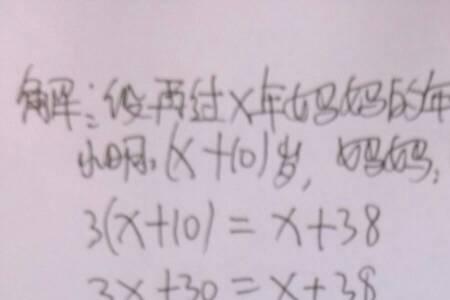 解:设再过x年妈妈的年
小明:(x+10)岁,妈妈:
3(x+10)=x+38
3x+30=x+38